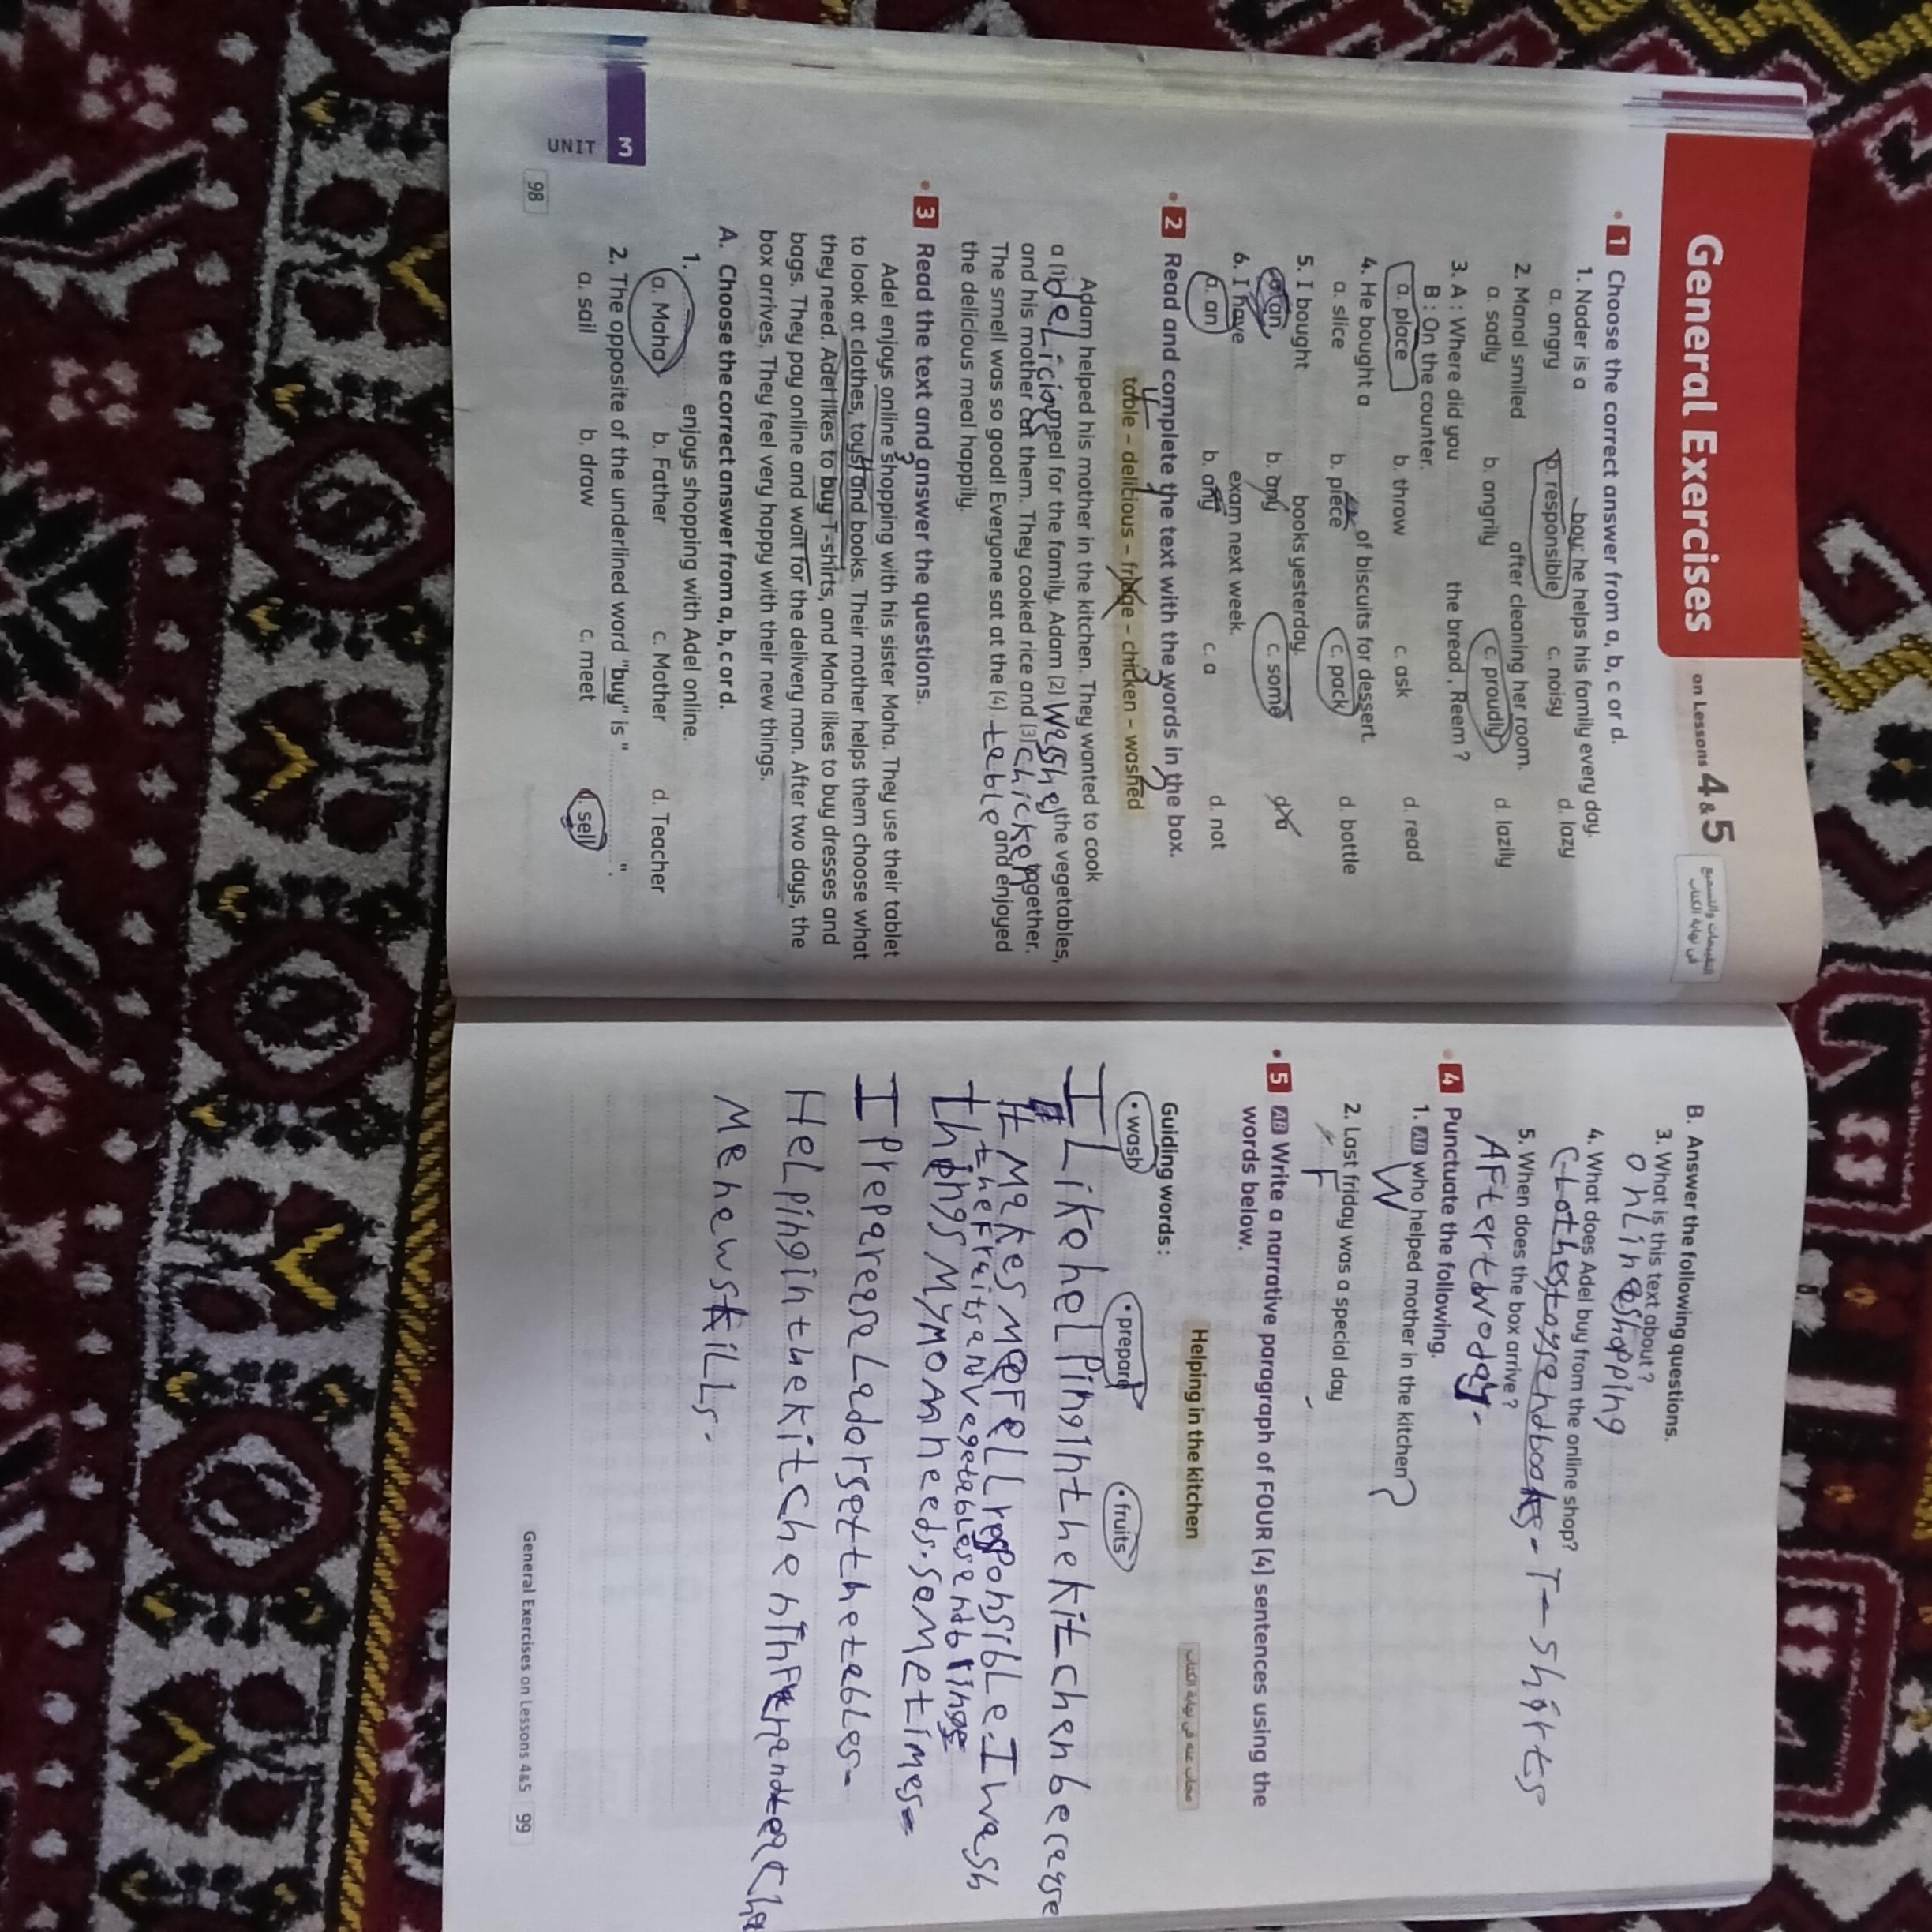 General Exercises on Lessons 4 & 5
التقييمات والتسميع
في نهاية الكتاب
1 Choose the correct answer from a, b, c or d.
1. Nader is a boy; he helps his family every day.
a. angry b. responsible c. noisy d. lazy
2. Manal smiled after cleaning her room.
a. sadly b. angrily c. proudly d. lazily
3. A : Where did you the bread, Reem?
B : On the counter.
a. place b. throw c. ask d. read
4. He bought a of biscuits for dessert.
a. slice b. piece c. pack d. bottle
5. I bought books yesterday.
a. an b. any c. some d. a
6. I have exam next week.
a. an b. any c. a d. not
2 Read and complete the text with the words in the box.
table – delicious – fridge – chicken – washed
4 3 2
Adam helped his mother in the kitchen. They wanted to cook
a (1) deLicious meal for the family. Adam (2) washed the vegetables,
and his mother cut them. They cooked rice and (3) chicken together.
The smell was so good! Everyone sat at the (4) table and enjoyed
the delicious meal happily.
3 Read the text and answer the questions.
3
Adel enjoys online shopping with his sister Maha. They use their tablet
to look at clothes, toys, and books. Their mother helps them choose what
they need. Adel likes to buy T-shirts, and Maha likes to buy dresses and
bags. They pay online and wait for the delivery man. After two days, the
box arrives. They feel very happy with their new things.
A. Choose the correct answer from a, b, c or d.
1. enjoys shopping with Adel online.
a. Maha b. Father c. Mother d. Teacher
2. The opposite of the underlined word "buy" is " ".
a. sail b. draw c. meet d. sell
UNIT 3
98
B. Answer the following questions.
3. What is this text about?
onLine shopping
4. What does Adel buy from the online shop?
CLothes toys and books - T-shirts
5. When does the box arrive?
AFter two day.
4 Punctuate the following.
1. AB who helped mother in the kitchen ?
W
2. Last friday was a special day .
F
5 AB Write a narrative paragraph of FOUR (4) sentences using the
words below.
Helping in the kitchen
مجاب عنه في نهاية الكتاب
Guiding words :
• wash • prepare • fruits
I Like heLPing in the kitchen because
It Makes Me FeLL responsibLe. I wash
the Fruits and vegetabLes and bring
things My MoM needs. soMetimes
I PrePare saLad or set the tabLes.
HeLPing in the kitchen
Me new skiLLs.
General Exercises on Lessons 4&5 99